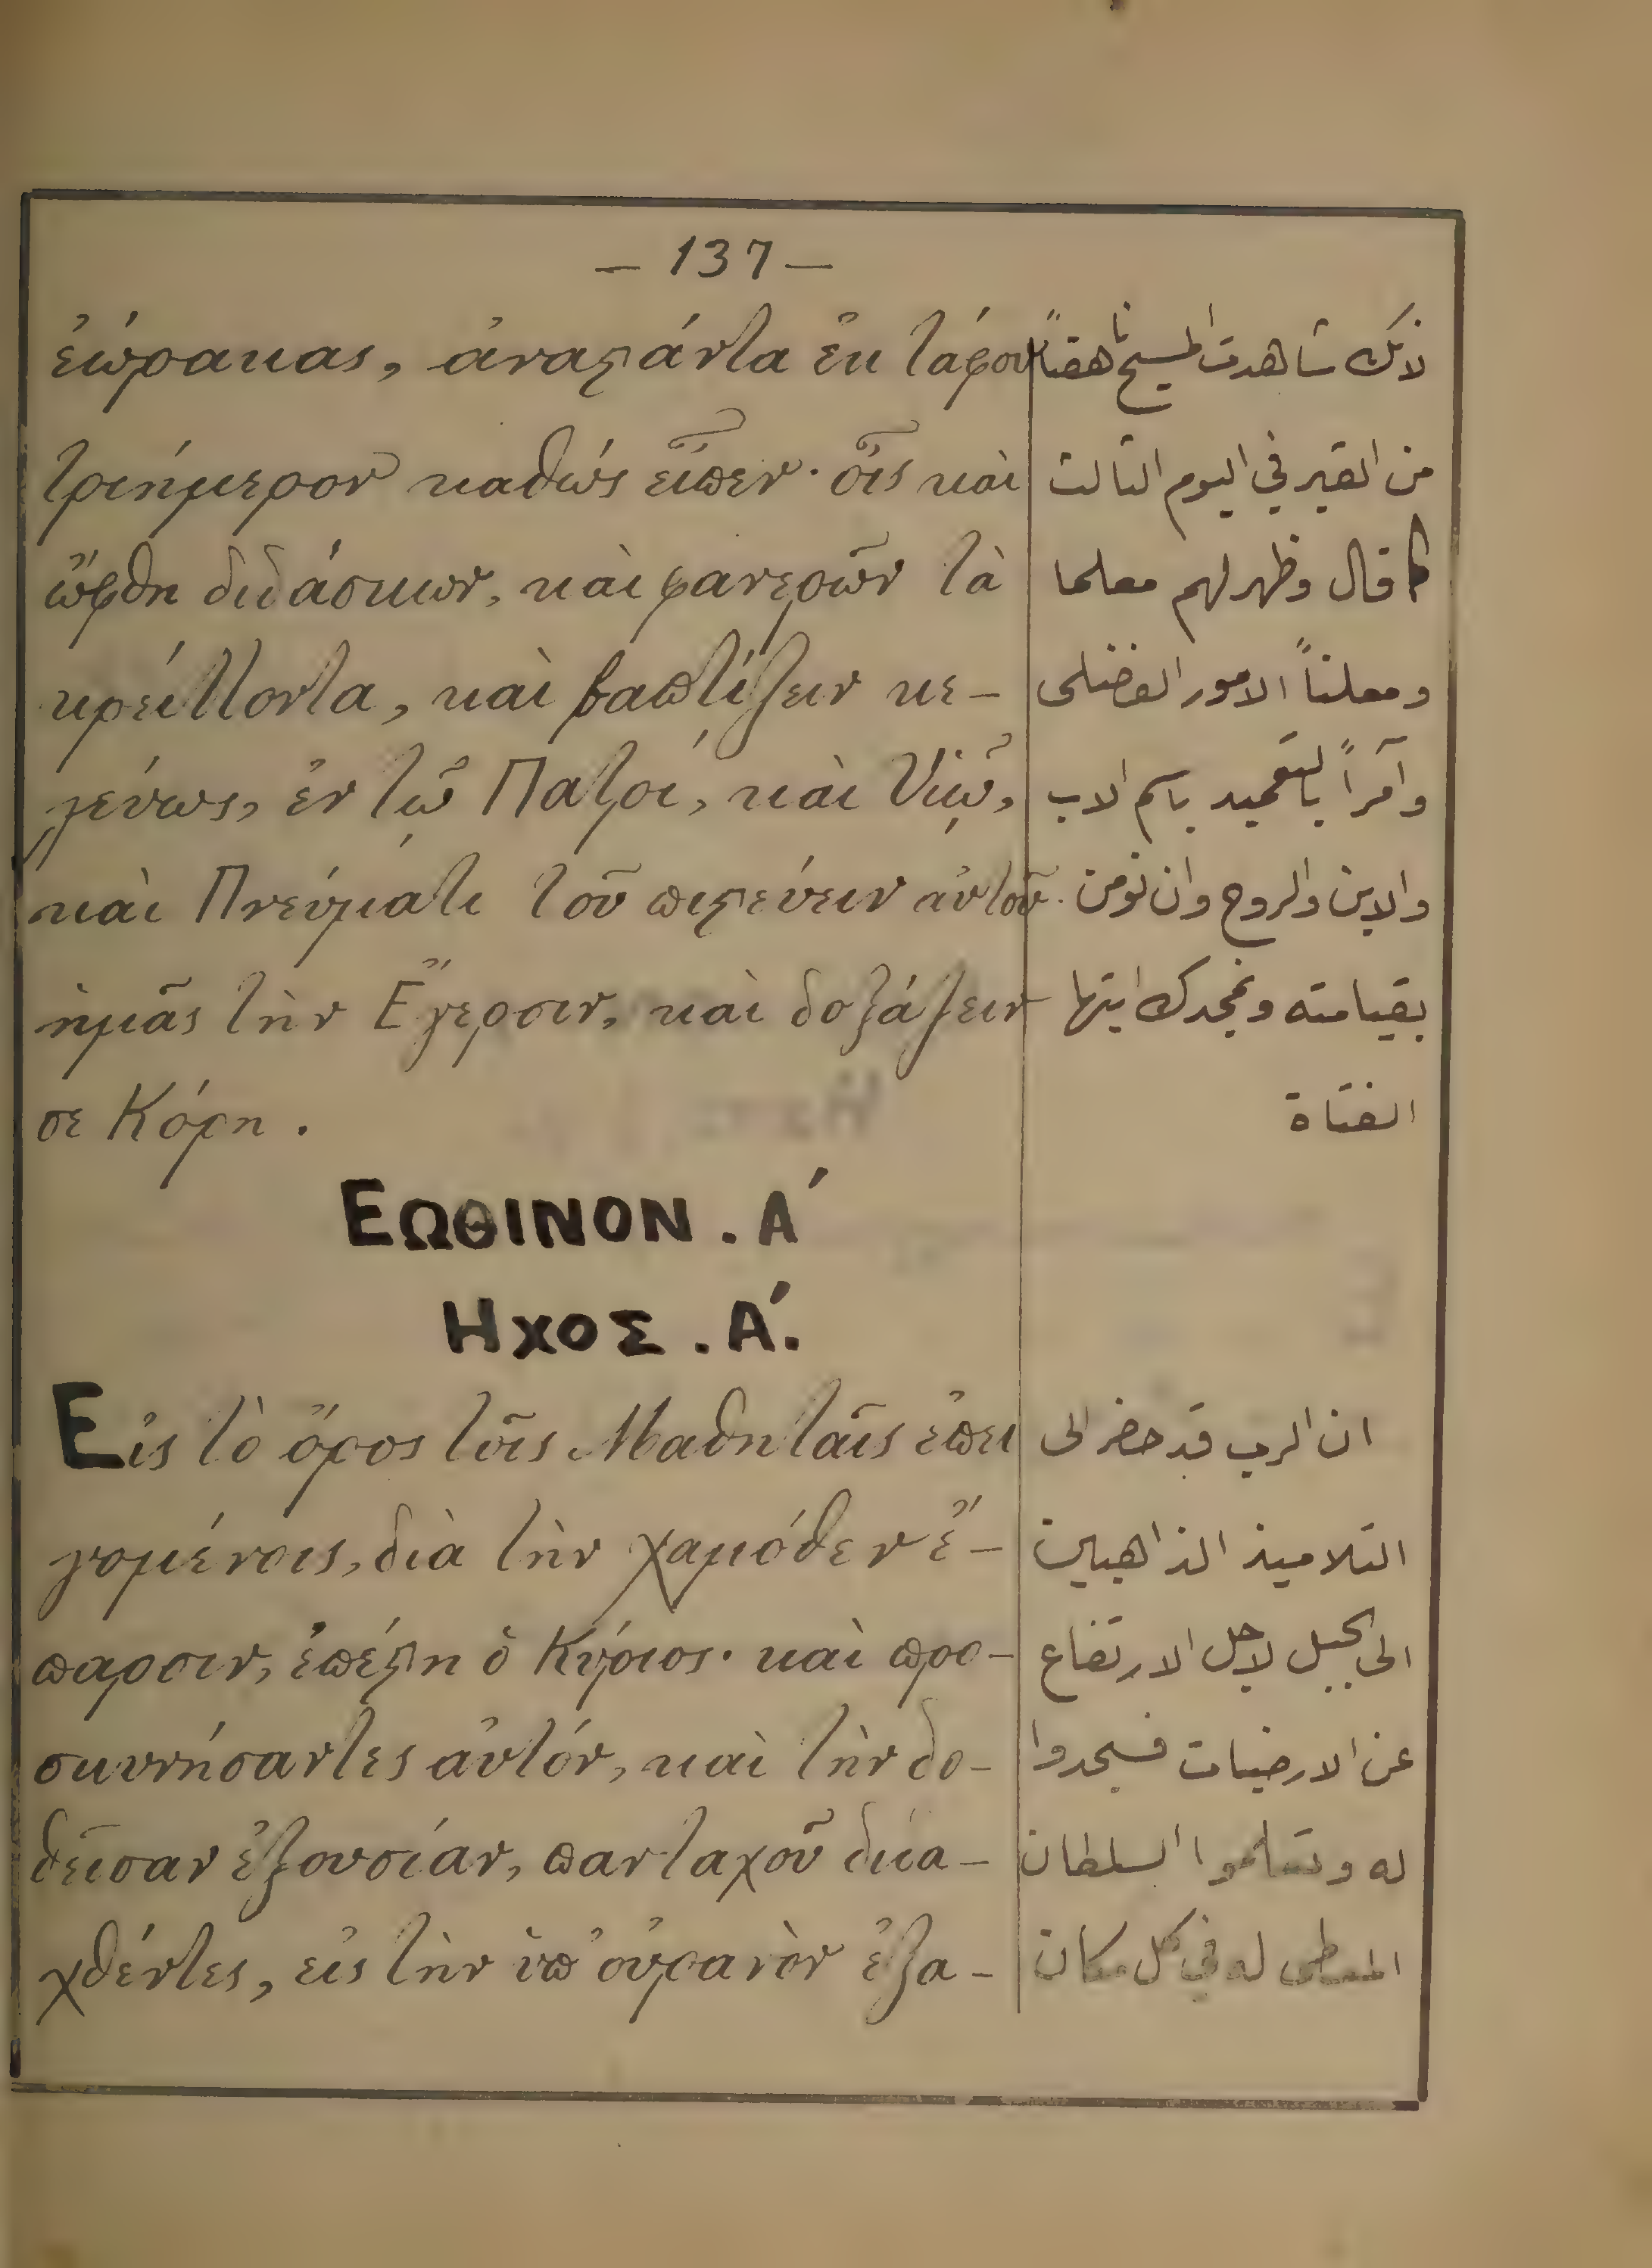 — 137 —
ἑώρακας, ἀναστάντα ἐκ τάφου
τριήμερον καθώς εἶπεν· οἷς καὶ
ὤφθη διδάσκων, καὶ φανερῶν τὰ
κρείττοντα, καὶ βαπτίζειν κε–
λεύων, ἐν τῷ Πατρί, καὶ Υἱῷ,
καὶ Πνεύματι τοῦ πιστεύειν αὐτοῦ.
ἡμᾶς τὴν Ἔγερσιν, καὶ δοξάζειν
σε Κόρη.
لانك شاهدت المسيح ناهضاً
من القبر في اليوم الثالث
كما قال وظهر لهم معلما
ومعلناً الامور الفضلى
وآمراً بالتعميد باسم الاب
والابن والروح وان نؤمن
بقيامته ونمجدك ايتها
الفتاة
ΕΩΘΙΝΟΝ. Α΄
ΗΧΟΣ. Α΄.
Εἰς τὸ ὄρος τοῖς Μαθηταῖς ἐπει
γομένοις, διὰ τὴν χαμόθεν ἔ–
παρσιν, ἐπέστη ὁ Κύριος· καὶ προ–
σκυνήσαντες αὐτόν, καὶ τὴν δο–
θεῖσαν ἐξουσίαν, πανταχοῦ διδα–
χθέντες, εἰς τὴν ὑπ' οὐρανὸν ἐξα–
ان الرب قد حضر الى
التلاميذ الذاهبين
الى الجبل لاجل الارتفاع
عن الارضيات فسجدوا
له وتعلموا السلطان
المعطى له في كل مكان